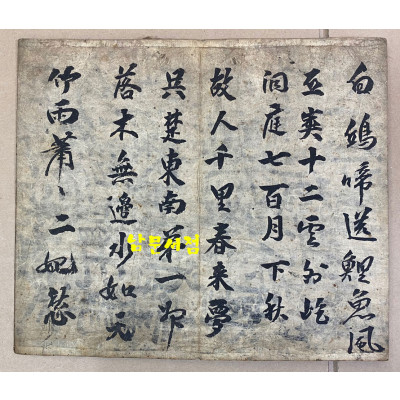 白啼送鯉魚風
十二雲外屹
洞庭七百月下秋
故人千里春来夢
吳楚東南第一
落木無邊水如天
竹雨蕭〻二妃愁
남문서점